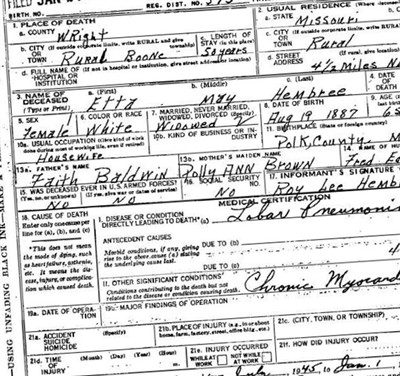 FILED JAN
BIRTH NO. REG. DIST. NO.
1. PLACE OF DEATH
a. COUNTY Wright
2. USUAL RESIDENCE (Where deceased
a. STATE Missouri
b. CITY (If outside corporate limits, write RURAL and give township)
OR TOWN Rural Boone
c. LENGTH OF STAY (in this place) 58 years
c. CITY (If outside corporate limits, write RURAL
OR TOWN Rural
d. FULL NAME OF (If not in hospital or institution, give street address or location)
HOSPITAL OR INSTITUTION
d. STREET ADDRESS (If rural, give location)
4 1/2 Miles
3. NAME OF DECEASED (Type or Print)
a. (First) Etta
b. (Middle) May
c. (Last) Hembree
5. SEX Female
6. COLOR OR RACE White
7. MARRIED, NEVER MARRIED, WIDOWED, DIVORCED (Specify) Widowed
8. DATE OF BIRTH Aug 19 1887
10a. USUAL OCCUPATION (Give kind of work done during most of working life, even if retired)
Housewife
10b. KIND OF BUSINESS OR INDUSTRY
11. BIRTHPLACE (State or foreign country)
Polk, County
13a. FATHER'S NAME
Faith Baldwin
13b. MOTHER'S MAIDEN NAME
Polly Ann Brown
Fred
15. WAS DECEASED EVER IN U.S. ARMED FORCES?
(Yes, no, or unknown) (If yes, give war or dates of service)
No
16. SOCIAL SECURITY NO.
No
17. INFORMANT'S SIGNATURE
Roy Lee Hemb
MEDICAL CERTIFICATION
18. CAUSE OF DEATH
Enter only one cause per line for (a), (b), and (c)
I. DISEASE OR CONDITION DIRECTLY LEADING TO DEATH* (a) Lobar Pneumoni
*This does not mean the mode of dying, such as heart failure, asthenia, etc. It means the disease, injury, or complication which caused death.
ANTECEDENT CAUSES
Morbid conditions, if any, giving rise to the above cause (a) stating the underlying cause last.
DUE TO (b)
DUE TO (c)
II. OTHER SIGNIFICANT CONDITIONS
Conditions contributing to the death but not related to the disease or condition causing death.
Chronic Myocard
19a. DATE OF OPERATION
19b. MAJOR FINDINGS OF OPERATION
21a. ACCIDENT SUICIDE HOMICIDE (Specify)
21b. PLACE OF INJURY (e.g., in or about home, farm, factory, street, office bldg., etc.)
21c. (CITY, TOWN, OR TOWNSHIP)
21d. TIME OF INJURY (Month) (Day) (Year) (Hour)
21e. INJURY OCCURRED
WHILE AT WORK NOT WHILE AT WORK
21f. HOW DID INJURY OCCUR?
July 1945 to Jan. 1
USING UNFADING BLACK INK—MAKE